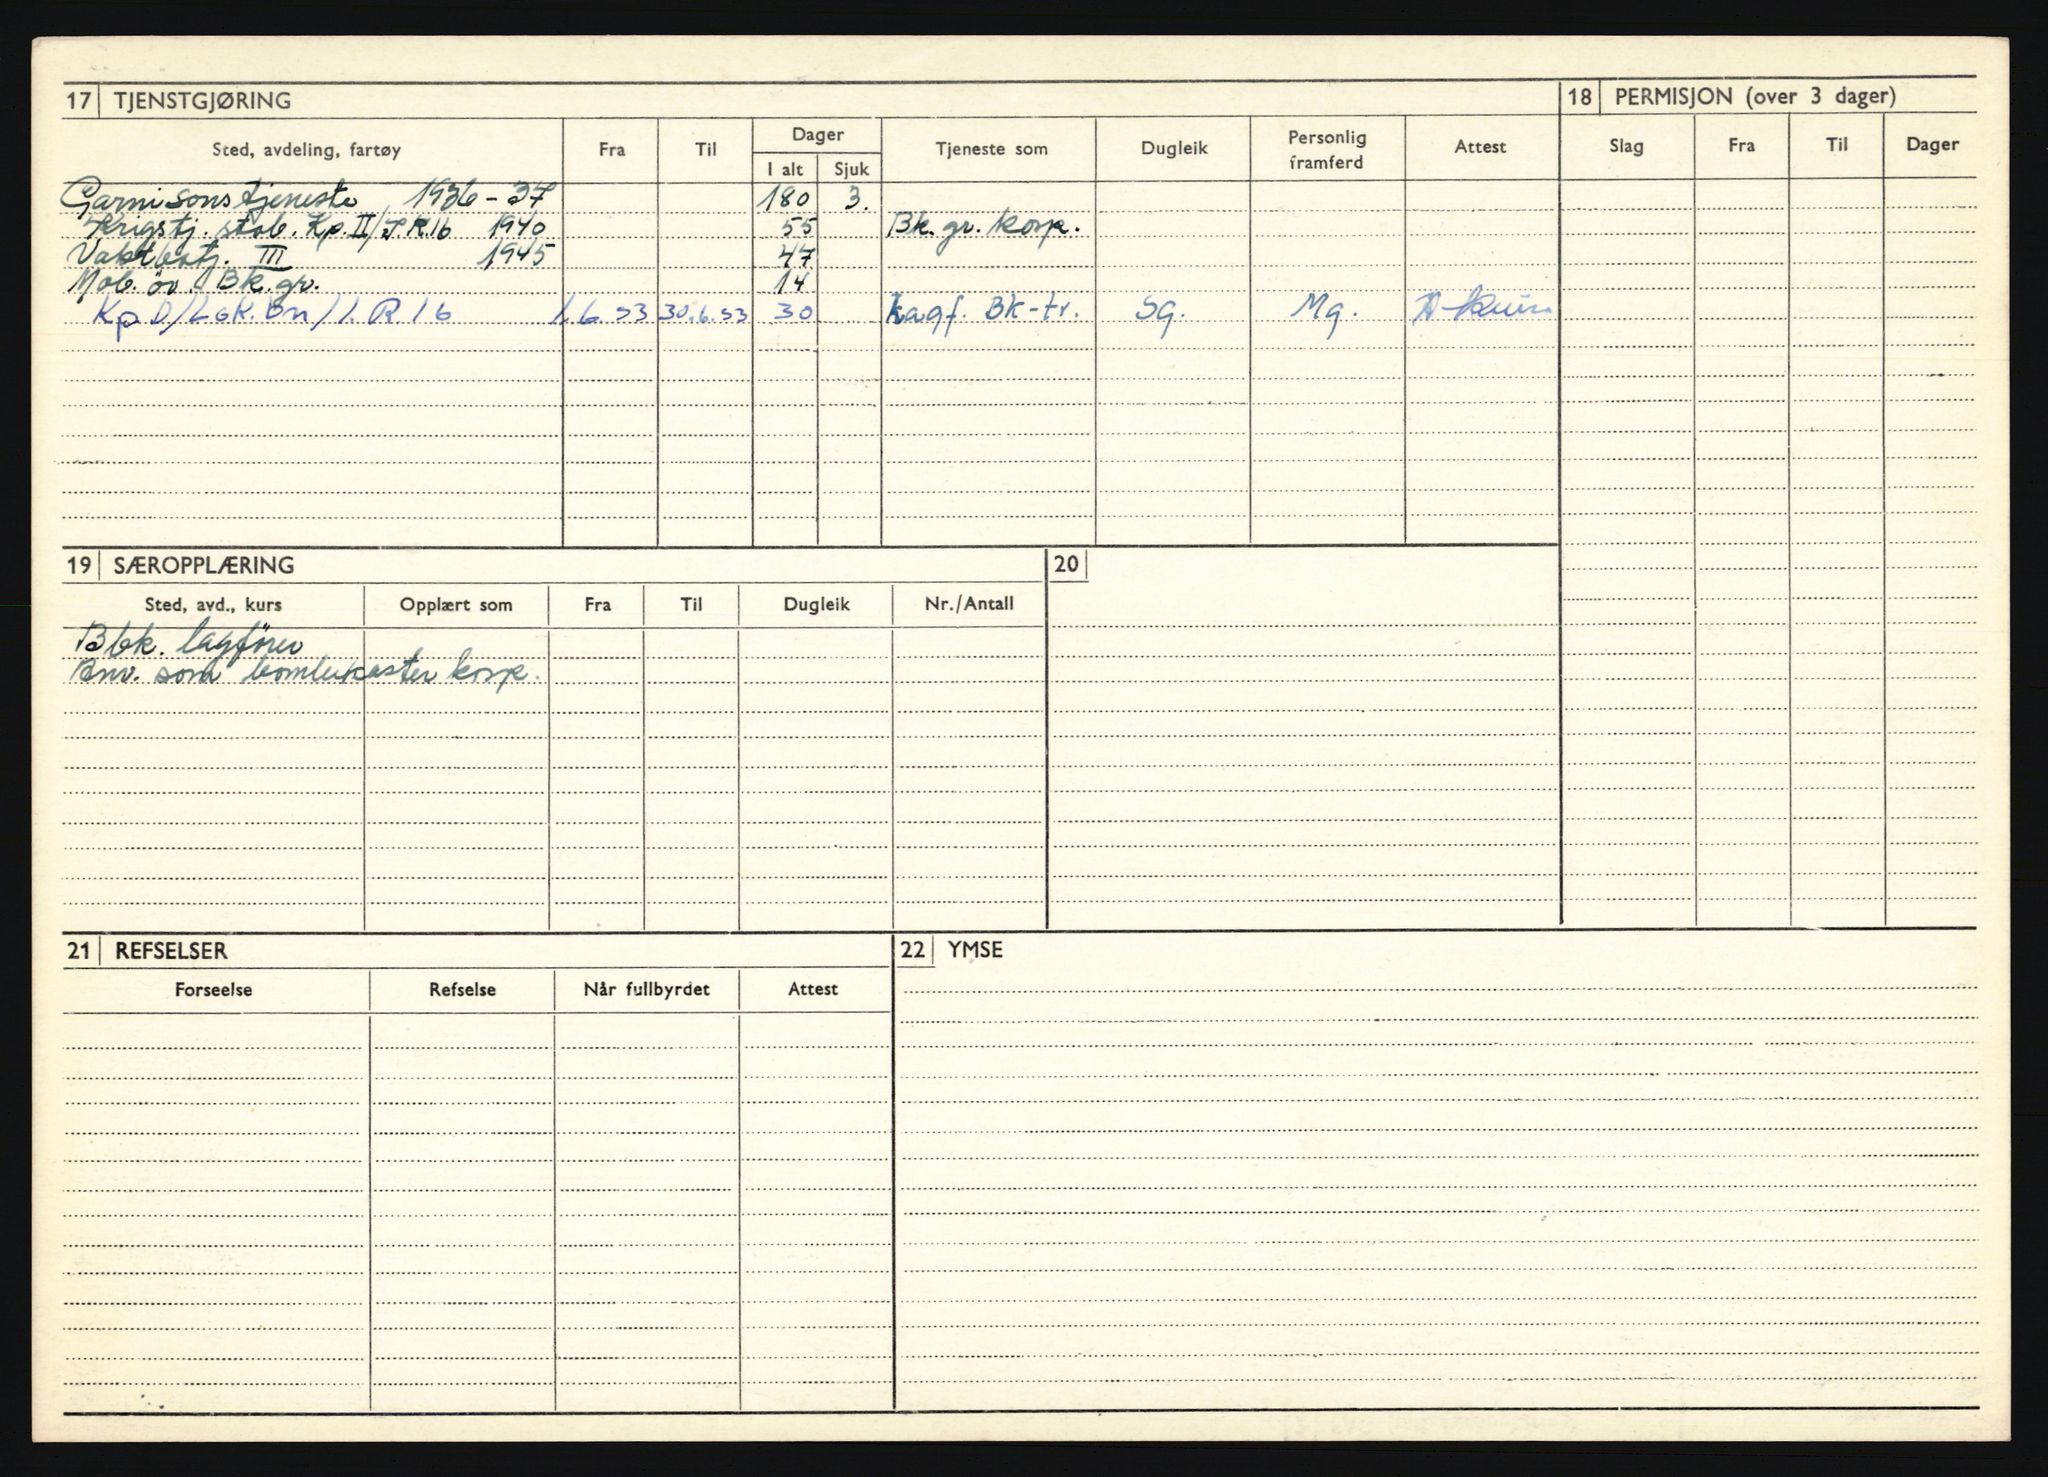 17 TJENSTGJØRING 18 PERMISJON (over 3 dager)
Sted, avdeling, fartøy Fra Til Dager Tjeneste som Dugleik Personlig framferd Attest Slag Fra Til Dager
I alt Sjuk
Garnisonstjeneste 1936-37 180 3.
Krigstj. stab. Kp. II/J.R.16 1940 55 Bk. gr. korp.
Vaktbatj. III 1945 47
Mob. öv. Bk. gr. 14
Kp D/LGK.Bn/I.R.16 1.6.53 30.6.53 30 Lagf. Bk-tr. Sg. Mg.
19 SÆROPPLÆRING 20
Sted, avd., kurs Opplært som Fra Til Dugleik Nr./Antall
Bbk. lagförer
Anv. som bombekaster korp.
21 REFSELSER 22 YMSE
Forseelse Refselse Når fullbyrdet Attest